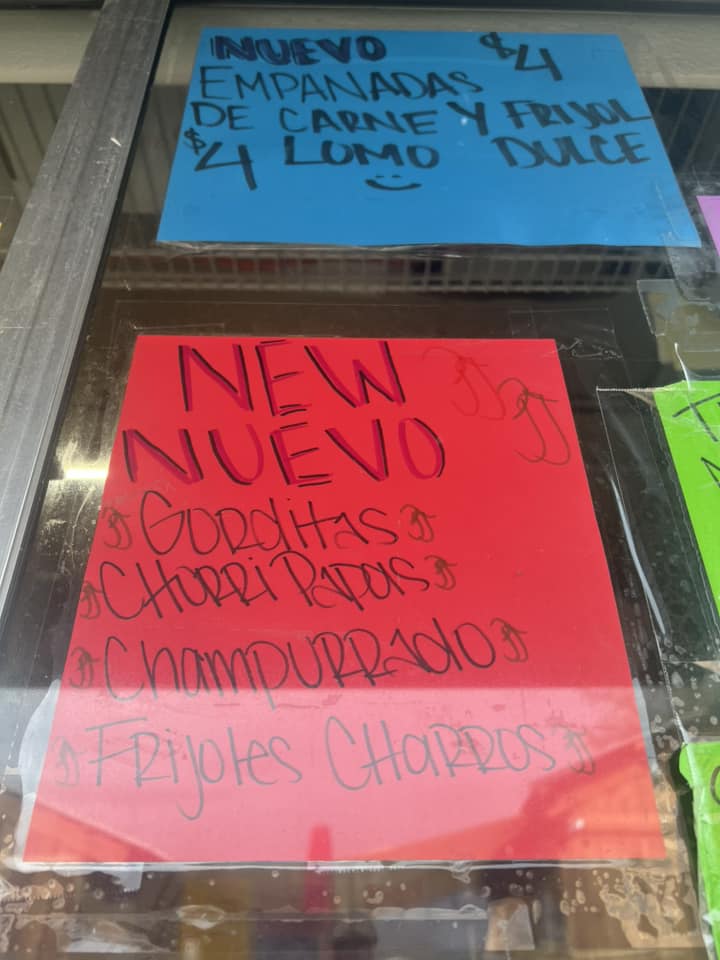 NUEVO $4
EMPANADAS
DE CARNE Y FRIJOL
$4 LOMO DULCE
NEW
NUEVO
Gorditas
CHORRiPAPAS
CHAMPURRAdo
FRijoles CHARROS